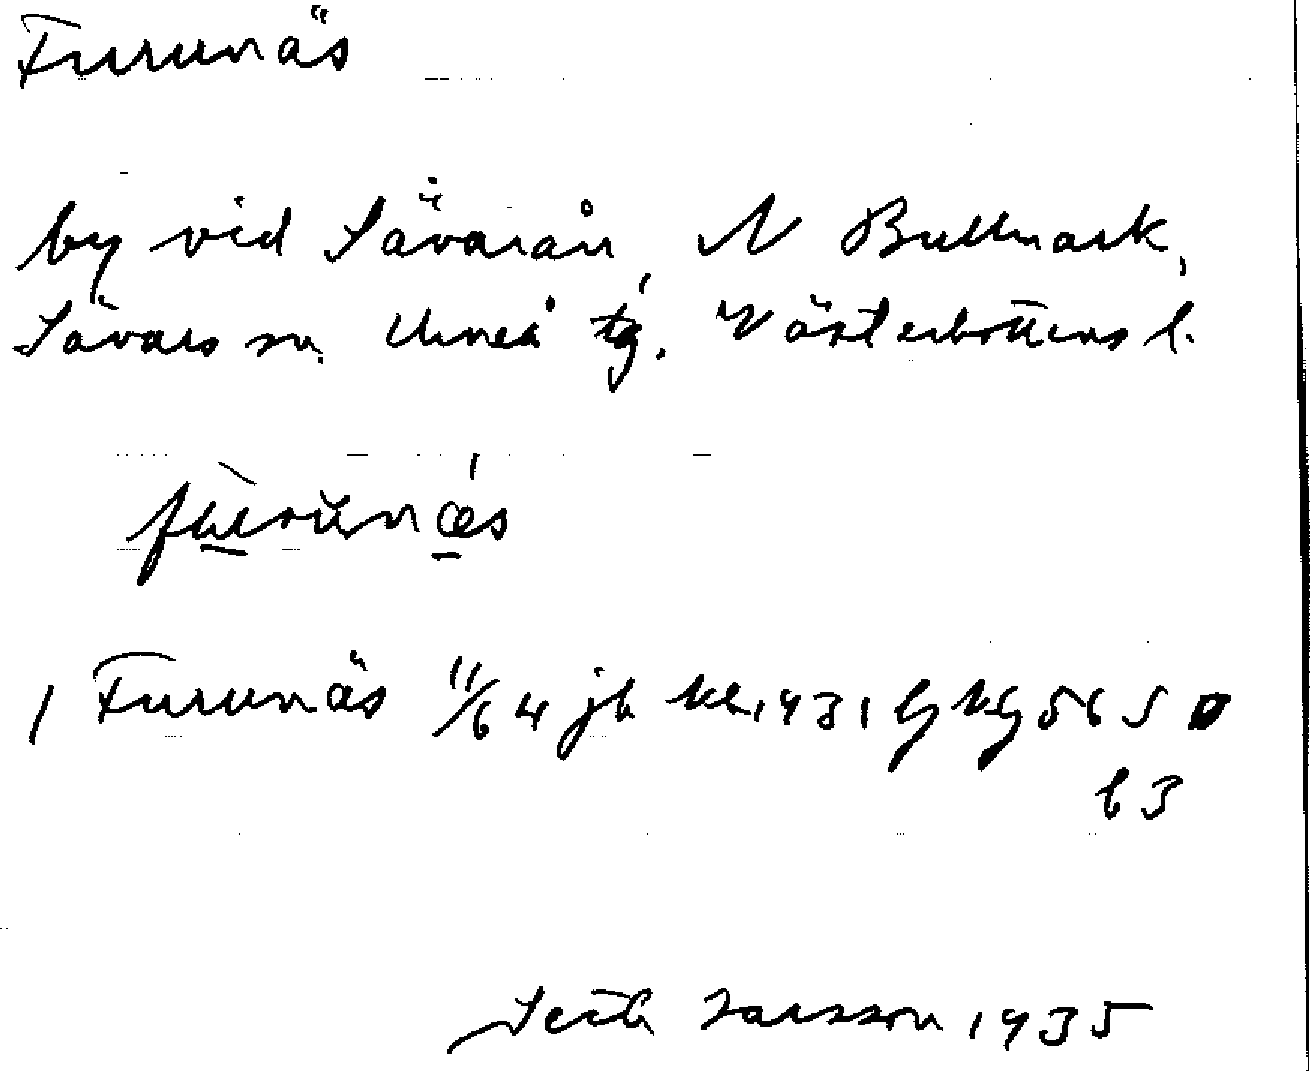 Furunäs
by vid Sävarån, N Bullmark,
Sävars sn. Umeå tg. Västerbottens l.
furunæs
1 Furunäs 11/6 4 jb 1931 56 5 0
63
Seth Larsson 1935